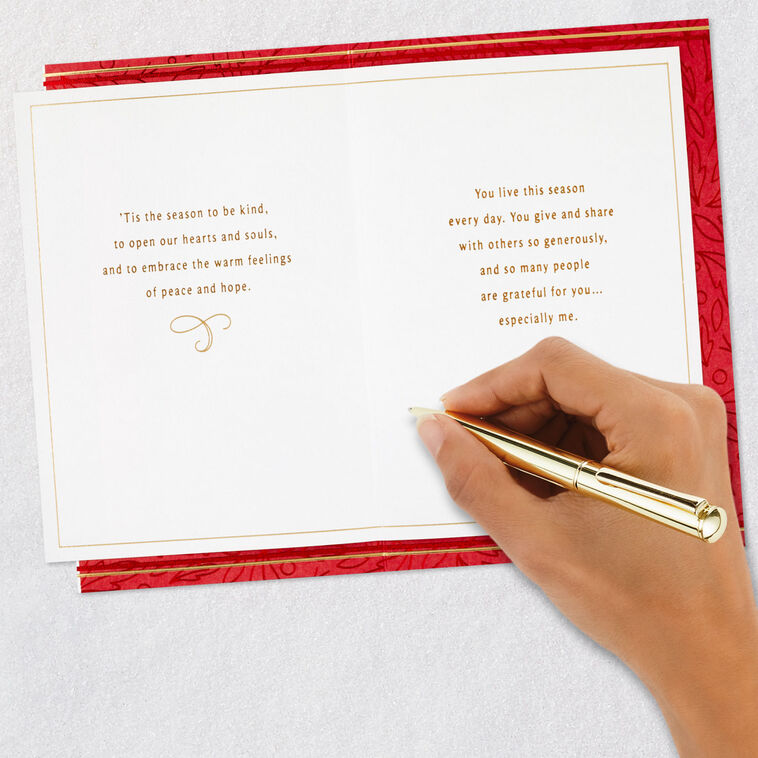 'Tis the season to be kind,
to open our hearts and souls,
and to embrace the warm feelings
of peace and hope.
You live this season
every day. You give and share
with others so generously,
and so many people
are grateful for you...
especially me.